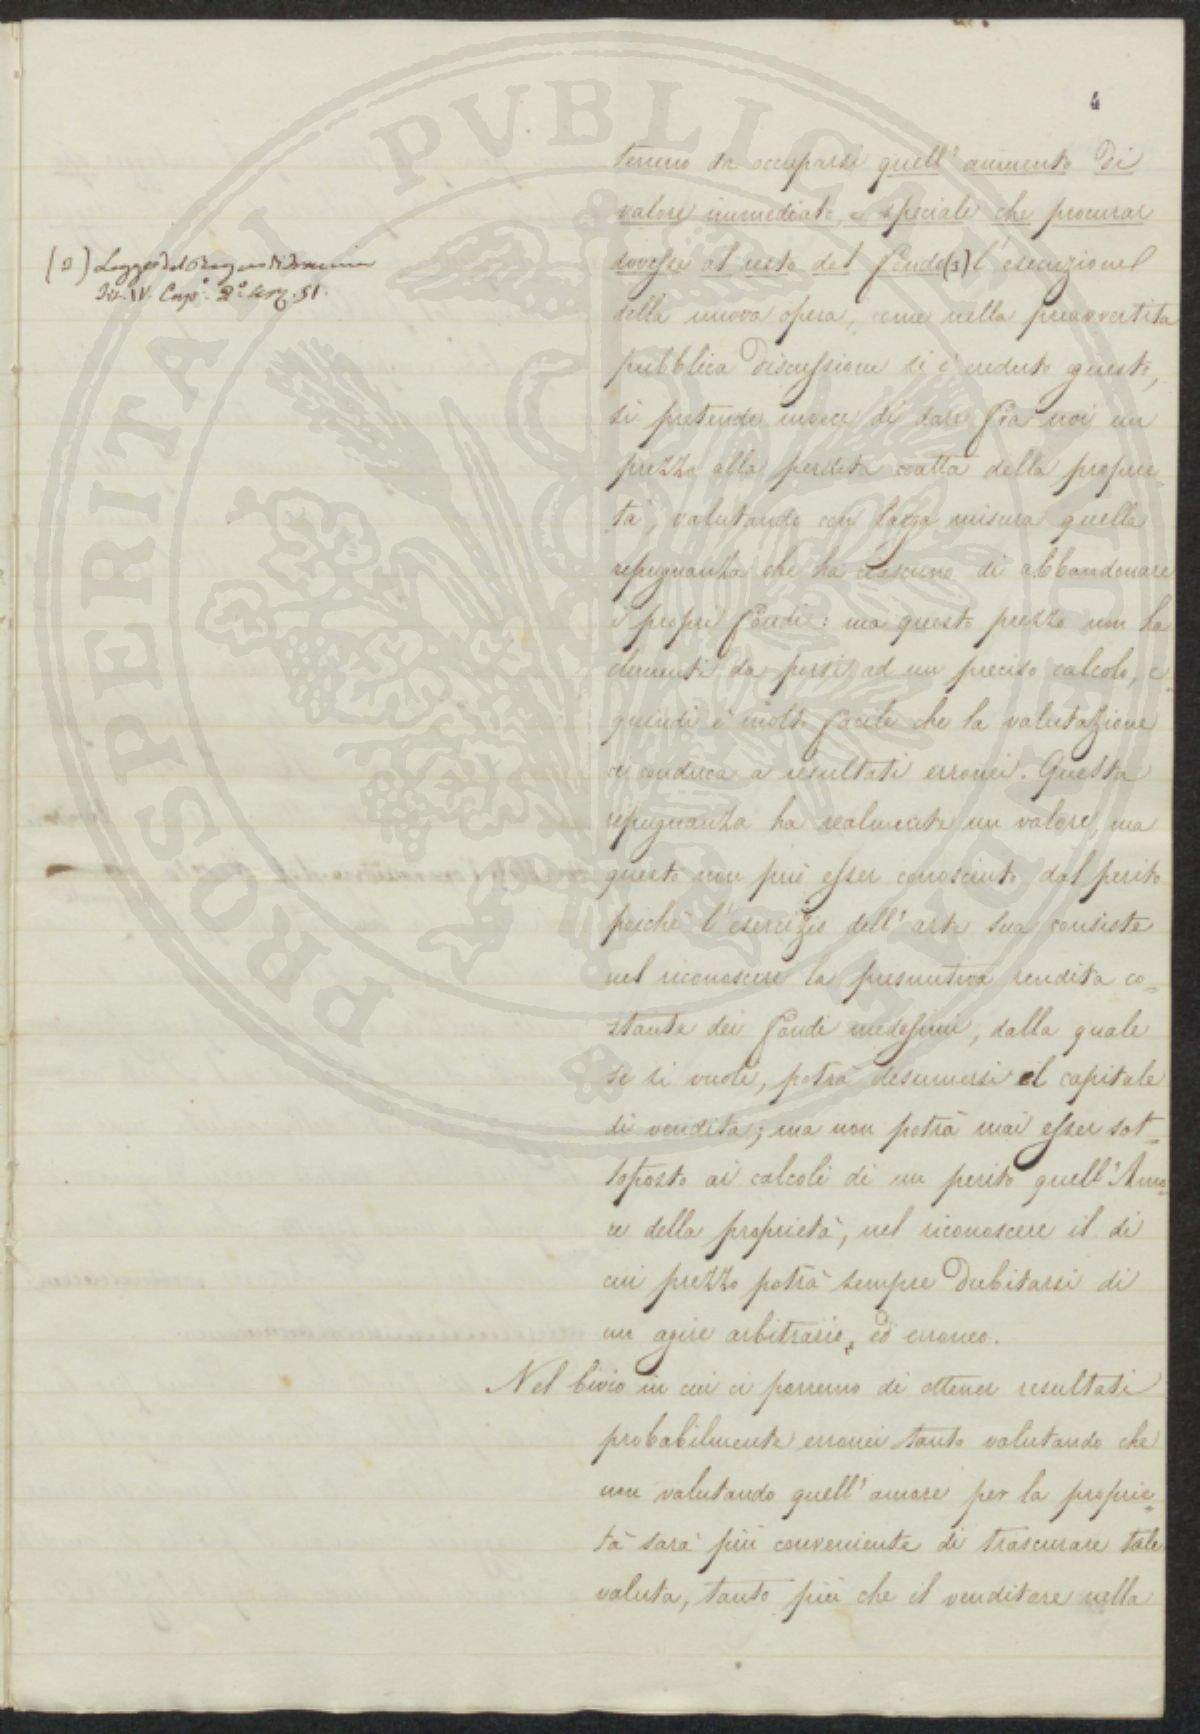 4
terreno da occuparsi quell' aumento di
valore immediato, e speciale che procurar
dovesse al resto del fondo (1) l'esecuzione
della nuova opera, come nella preavvertita
pubblica discussione si è creduto giusto,
si pretende invece di dare fra noi un
prezzo alla perdita coatta della proprie=
tà, valutando con larga misura quella
repugnanza che ha ciascuno di abbandonare
i propri fondi: ma questo prezzo non ha
elementi da porsi ad un preciso calcolo, e
quindi è molto facile che la valutazione
ci conduca a resultati erronei. Questa
repugnanza ha realmente un valore, ma
questo non può esser conosciuto dal perito
poichè l'esercizio dell'arte sua consiste
nel riconoscere la presuntiva rendita co=
stante dei fondi medesimi, dalla quale
se si vuole, potrà desumersi il capitale
di vendita; ma non potrà mai esser sot=
toposto ai calcoli di un perito quell'Amo=
re della proprietà, nel riconoscere il di
cui prezzo potrà sempre dubitarsi di
un agire arbitrario, ed erroneo.
Nel bivio in cui ci porremo di ottener resultati
probabilmente erronei tanto valutando che
non valutando quell'amore per la proprie=
tà sarà più conveniente di trascurare tale
valuta, tanto più che il venditore nella
(1) Legge del Regno di Francia
Tit. IV. Cap.° 2.° Art. 51.
PROSPERITATI PUBLICAE